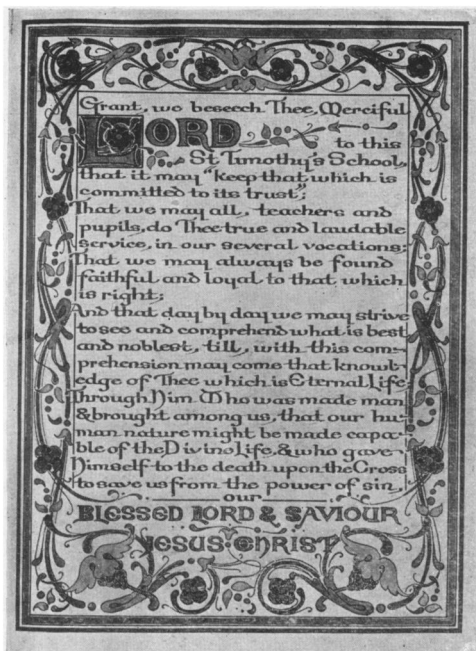 Grant, we beseech Thee, Merciful
LORD
to this
St Timothy's School,
that it may "keep that which is
committed to its trust";
That we may all, teachers and
pupils, do Thee true and laudable
service, in our several vocations;
That we may always be found
faithful and loyal to that which
is right;
And that day by day we may strive
to see and comprehend what is best
and noblest, till, with this com-
prehension may come that knowl-
edge of Thee which is Eternal Life,
Through Him Who was made man
& brought among us, that our hu-
man nature might be made capa-
ble of the Divine Life, & who gave
Himself to the death upon the Cross
to save us from the power of sin,
our
BLESSED LORD & SAVIOUR
JESUS CHRIST